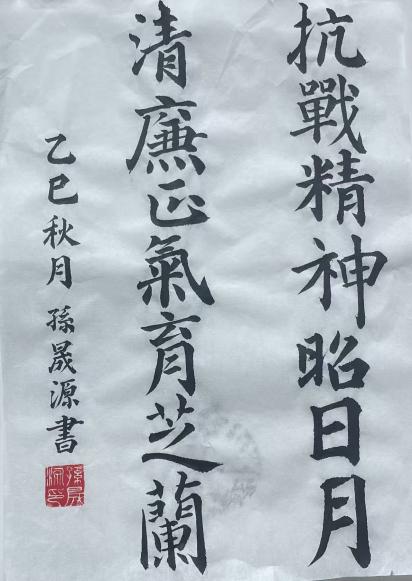 抗戰精神昭日月
清廉正氣育芝蘭
乙巳秋月 孫晟源書
孫晟源印